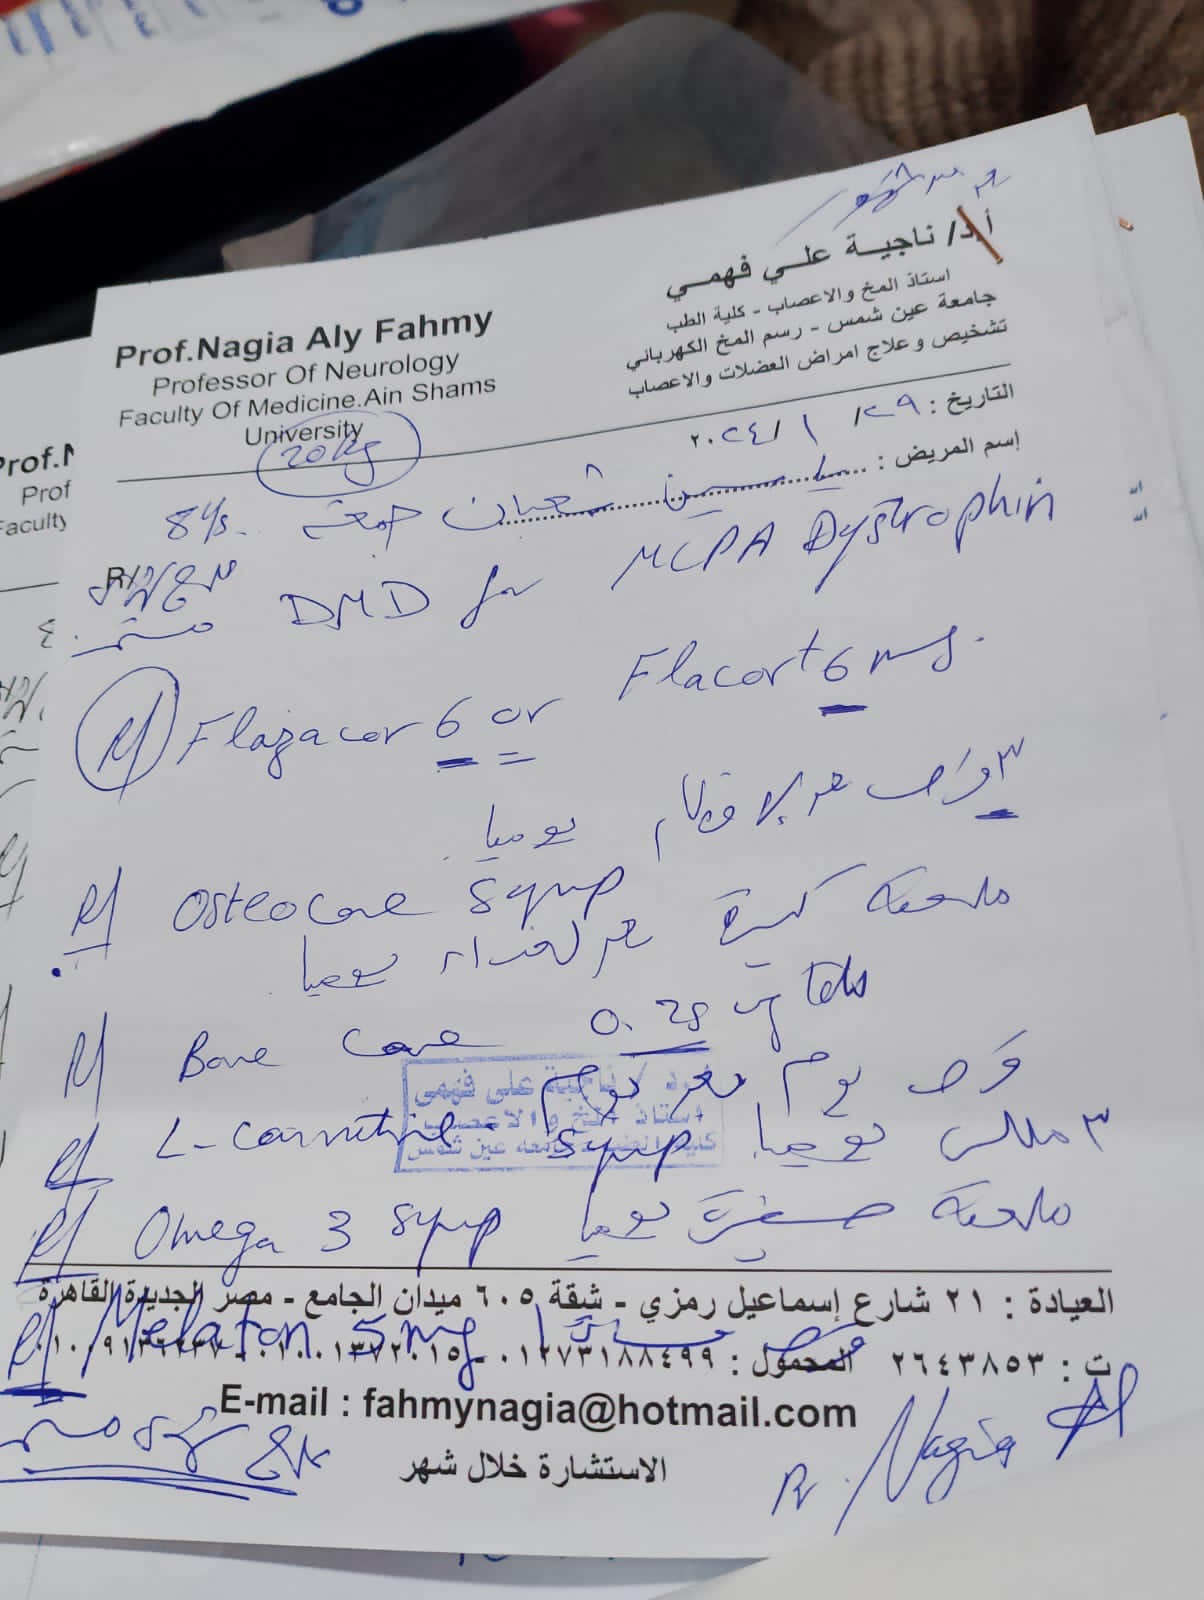 أ.د/ ناجيـة علـي فهمـي
استاذ المخ والاعصاب - كلية الطب
جامعة عين شمس - رسم المخ الكهربائي
تشخيص وعلاج امراض العضلات والاعصاب
Prof.Nagia Aly Fahmy
Professor Of Neurology
Faculty Of Medicine.Ain Shams
University
20 kg
التاريخ : ٢٩/ ١ /٢٠٢٤
إسم المريض : ياسين شعبان جمعة
8 ys.
R/
DMD for MLPA Dystrophin
R/ Flazacor 6 or Flacort 6 mg.
٣ قرص بعد الافطار يوميا
R/ Osteocare syrup
ملعقة كبيرة بعد الغداء يوميا
R/ Bone Care 0.25 ug tds
قرص يوم بعد يوم
R/ L-carnitine syrup ٣ مللى يوميا
R/ Omega 3 syrup ملعقة صغيرة يوميا
R/ Melaton 5 mg قرص مساءا
أ.د / ناجية على فهمى
أستاذ المخ والاعصاب
كلية الطب جامعه عين شمس
العيادة : ٢١ شارع إسماعيل رمزي - شقة ٦٠٥ ميدان الجامع - مصر الجديدة القاهرة
ت : ٢٦٤٣٨٥٣ المحمول : ٠١٢٧٣١٨٨٤٩٩
E-mail : fahmynagia@hotmail.com
الاستشارة خلال شهر
Nagia Al